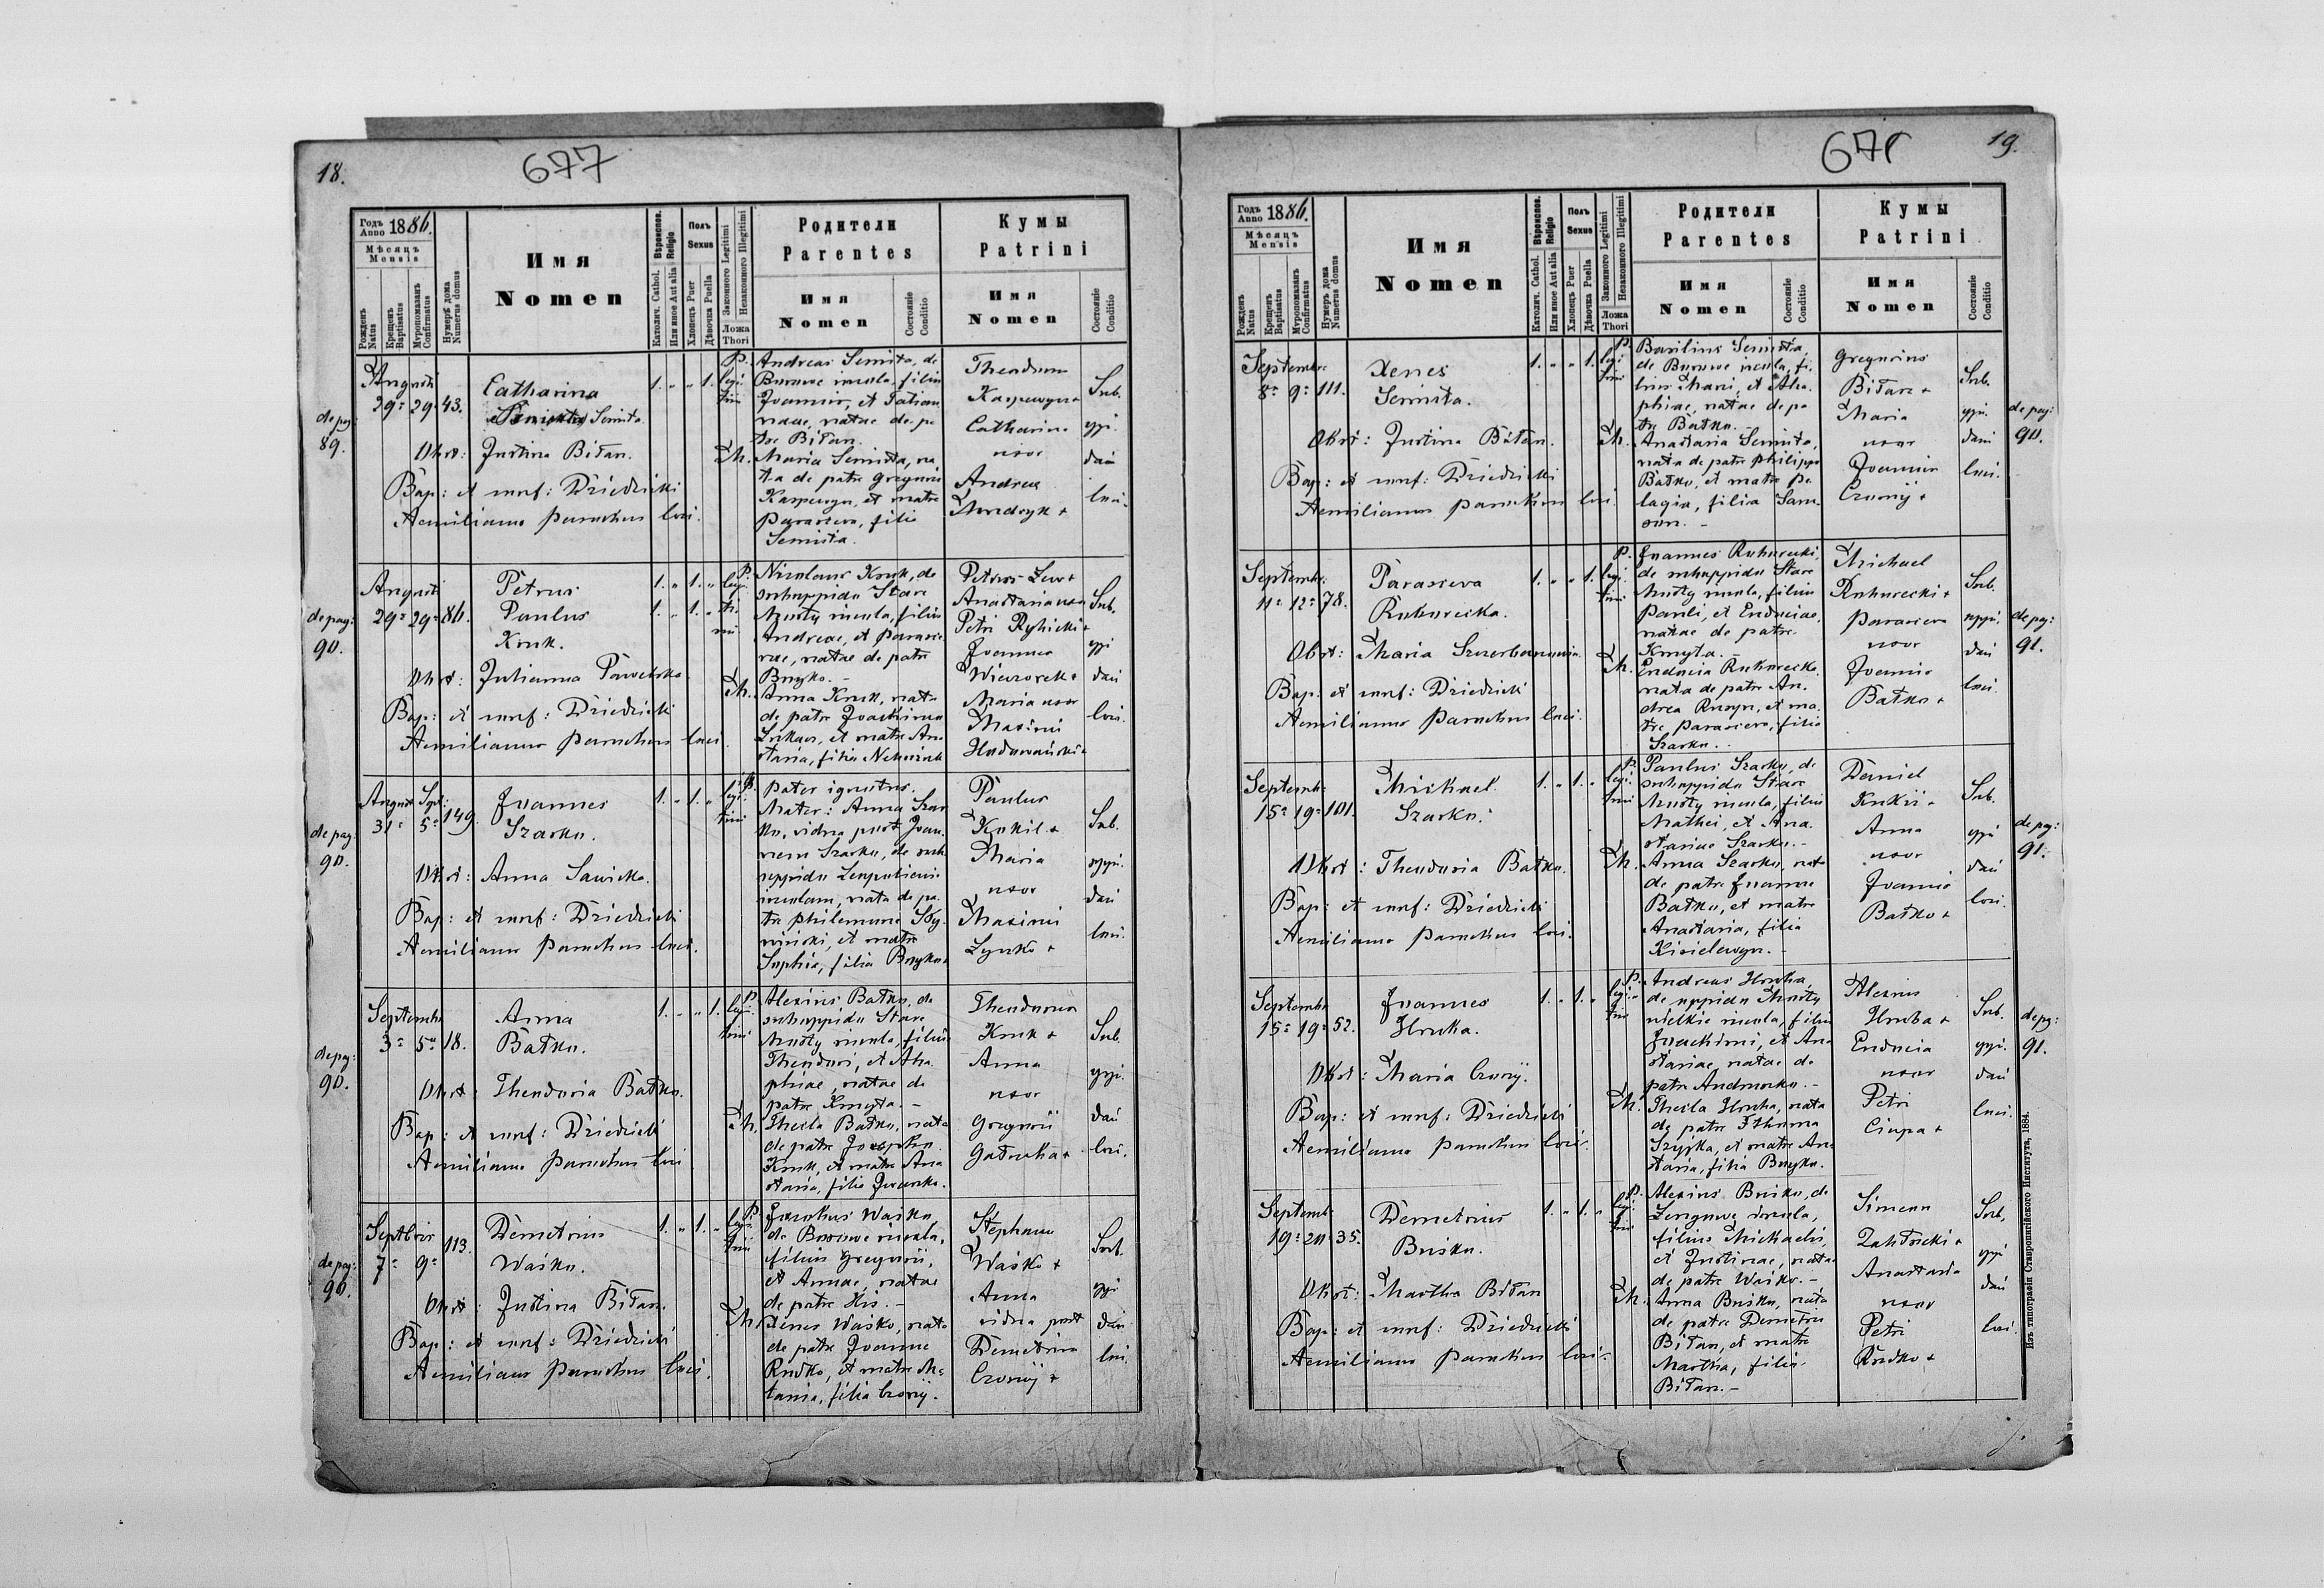 18.
677
Годъ
Anno 1886.
Мѣсяцъ
Mensis
Рожденъ
Natus
Крещенъ
Baptisatus
Мѵропомазанъ
Confirmatus
Нумеръ дома
Numerus domus
Имя
Nomen
Вѣроиспов.
Religio
Католич. Cathol.
Или иное Aut alia
Полъ
Sexus
Хлопецъ Puer
Дѣвочка Puella
Законного Legitimi
Незаконного Illegitimi
Ложа
Thori
Родители
Parentes
Имя
Nomen
Состояніе
Conditio
Кумы
Patrini
Имя
Nomen
Состояніе
Conditio
de pag:
89.
Augusti
29ᵃ 29ᵃ 43.
Catharina
Semista
Obst: Justina Bitan.
Bap: et conf: Dziedzicki
Aemilianus parochus loci.
1. „ „ 1.
legi:
timi
P. Andreas Semista, de
Busowe incola, filius
Joannis, et Tatian
nae, natae de pa
tre Bitan.
M. Maria Semista, na
ta de patre Gregorio
Kaspewyn, et matre
Parasceva, filia
Semista.
Theodorus
Kaspewyn +
Catharina
uxor
Andreae
Sub.
oppi.
dani
loci.
de pag:
90.
Augusti
29ᵃ 29ᵃ 86.
Petrus
Paulus
Kruk.
Obst: Julianna Pawelska
Bap: et conf: Dziedzicki
Aemilianus parochus loci.
1. „ 1. „
1. „ 1. „
legi:
ti.
mi.
P. Nicolaus Kruk, de
suboppido Stare
Miasty incola, filius
Andreae, et Parasce
vae, natae de patre
Boyko. –
M. Anna Kruk, nata
de patre Joachimo
et matre Ana
stasia, filia
Petrus Lew +
Anastasia uxor
Petri Rybicki +
Joannes
Wieczorek +
Maria uxor
Maximi
Sub.
oppi
dani
loci.
de pag:
90.
August Sept:
31ᵃ 5ᵃ 149.
Joannes
Szarko.
Obst: Anna Sawicka.
Bap: et conf: Dziedzicki
Aemilianus parochus loci.
1. „ 1. „
legi:
timi
Pater ignotus.
Mater: Anna Szar
ko, vidua post Joan
nem Szarko, de sub
oppido Lespolienie
incolam, nata de pa
tre Philemone
et matre
Sophia, filia Boyko.
Paulus
Kukil +
Maria
uxor
Maximi
Lysko +
Sub.
oppi.
dani
loci.
de pag:
90.
Septembr
3ᵃ 5ᵃ 18.
Anna
Batko.
Obst: Theodoria Batko.
Bap: et conf: Dziedzicki
Aemilianus parochus loci
1. „ „ 1.
legi:
timi
P. Alexius Batko, de
suboppido Stare
Miasty incola, filius
Theodori, et Aha
phiae, natae de
patre Kmyta. –
M. Thecla Batko, nata
de patre Josepho
Kruk, et matre Ana
stasia, filia Iwasko.
Theodorus
Kruk +
Anna
uxor
Gregorii
Gatuska +
Sub.
oppi.
dani
loci.
de pag:
90.
Septbris
7ᵃ 9ᵃ 113.
Demetrius
Wasko.
Obst: Justina Bitan.
Bap: et conf: Dziedzicki
Aemilianus parochus loci.
1. „ 1. „
legi:
timi
P. Jacobus Wasko
de Busowe incola,
filius Gregorii,
et Annae, natae
de patre His. –
M. Xenes Wasko, nata
de patre Joanne
Rudko, et matre Me
lania, filia Czornij.
Stephanus
Wasko +
Anna
vidua post
Demetrium
Czornij +
Sub.
oppi
dani
loci.
19.
678
Годъ
Anno 1886.
Мѣсяцъ
Mensis
Рожденъ
Natus
Крещенъ
Baptisatus
Мѵропомазанъ
Confirmatus
Нумеръ дома
Numerus domus
Имя
Nomen
Вѣроиспов.
Religio
Католич. Cathol.
Или иное Aut alia
Полъ
Sexus
Хлопецъ Puer
Дѣвочка Puella
Законного Legitimi
Незаконного Illegitimi
Ложа
Thori
Родители
Parentes
Имя
Nomen
Состояніе
Conditio
Кумы
Patrini
Имя
Nomen
Состояніе
Conditio
Septembr:
8ᵃ 9ᵃ 111.
Xenes
Semista.
Obst: Justina Bitan.
Bap: et conf: Dziedzicki
Aemilianus parochus loci.
1. „ „ 1.
legi:
timi
P. Basilius Semista,
de Busowe incola, fi
lius et Aha
phiae, natae de pa
tre Batko. –
M. Anastasia Semista,
nata de patre Philippo
Batko, et matre Pe
lagia, filia Sam
son. –
Gregorius
Bitan +
Maria
uxor
Joannis
Czornij +
Sub.
oppi.
dani
loci.
de pag:
90.
Septembr:
11ᵃ 12ᵃ 78.
Parasceva
Ruhurecka.
Obst: Maria
Bap: et conf: Dziedzicki
Aemilianus parochus loci.
1. „ „ 1.
legi:
timi
P. Joannes Ruhurecki,
de suboppido Stare
Miasty incola, filius
Pauli, et Eudociae,
natae de patre
Kmyta. –
M. Eudocia Ruhurecka
nata de patre An
drea Rusyn, et ma
tre Parasceva, filia
Szarko. .
Michael
Ruhurecki +
Parasceva
uxor
Joannis
Batko +
Sub.
oppi.
dani
loci.
de pag:
91.
Septembr:
15ᵃ 19ᵃ 101.
Michael
Szarko.
Obst: Theodoria Batko.
Bap: et conf: Dziedzicki
Aemilianus parochus loci.
1. „ 1. „
legi:
timi
P. Paulus Szarko, de
suboppido Stare
Miasty incola, filius
Mathei, et Ana
stasiae Szarko. –
M. Anna Szarko, nata
de patre Joanne
Batko, et matre
Anastasia, filia
Kisielewyn. –
Daniel
Kukil +
Anna
uxor
Joannis
Batko +
Sub.
oppi
dani
loci.
de pag:
91.
Septembr
15ᵃ 19ᵃ 52.
Joannes
Hruba.
Obst: Maria Czornij.
Bap: et conf: Dziedzicki
Aemilianus parochus loci.
1. „ 1. „
legi:
timi
P. Andreas Hruba,
de oppido Miasty
wielkie incola, filius
Joachimi, et Ana
stasiae, natae de
patre Andruszko. –
M. Thecla Hruba, nata
de patre Thoma
Szypka, et matre Ana
stasia, filia Boyko.
Alexius
Hruba +
Eudocia
uxor
Petri
Ciupa +
Sub.
oppi.
dani
loci.
de pag:
91.
Septembr
19ᵃ 20 35.
Demetrius
Busko.
Obst: Martha Bitan
Bap: et conf: Dziedzicki
Aemilianus parochus loci.
1. „ 1. „
legi:
timi
P. Alexius Busko, de
incola,
filius Michaelis,
et Justinae, natae
de patre Wasko. –
M. Anna Busko, nata
de patre Demetrio
Bitan, et matre
Martha, filia
Bitan. –
Simeon
Anastasia
uxor
Petri
Rudko +
Sub.
oppi
dani
loci.
Изъ типографіи Ставропигійского Института, 1884.